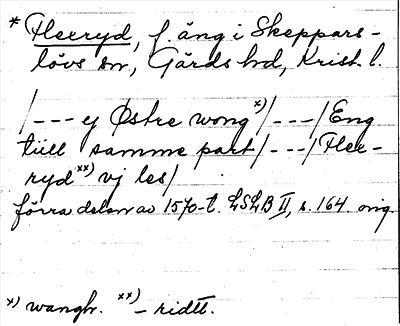 * Fleeryd, f. äng i Skeppars-
lövs sn, Gärds hd, Krist. l.
/--- ej Østre wong x)/---/Eng
tiill samme part/---/Flee-
ryd xx) vj les/
förra delen av 1570-t. LSLB II, s. 164 orig.
x) wangh. xx) -ridtt.